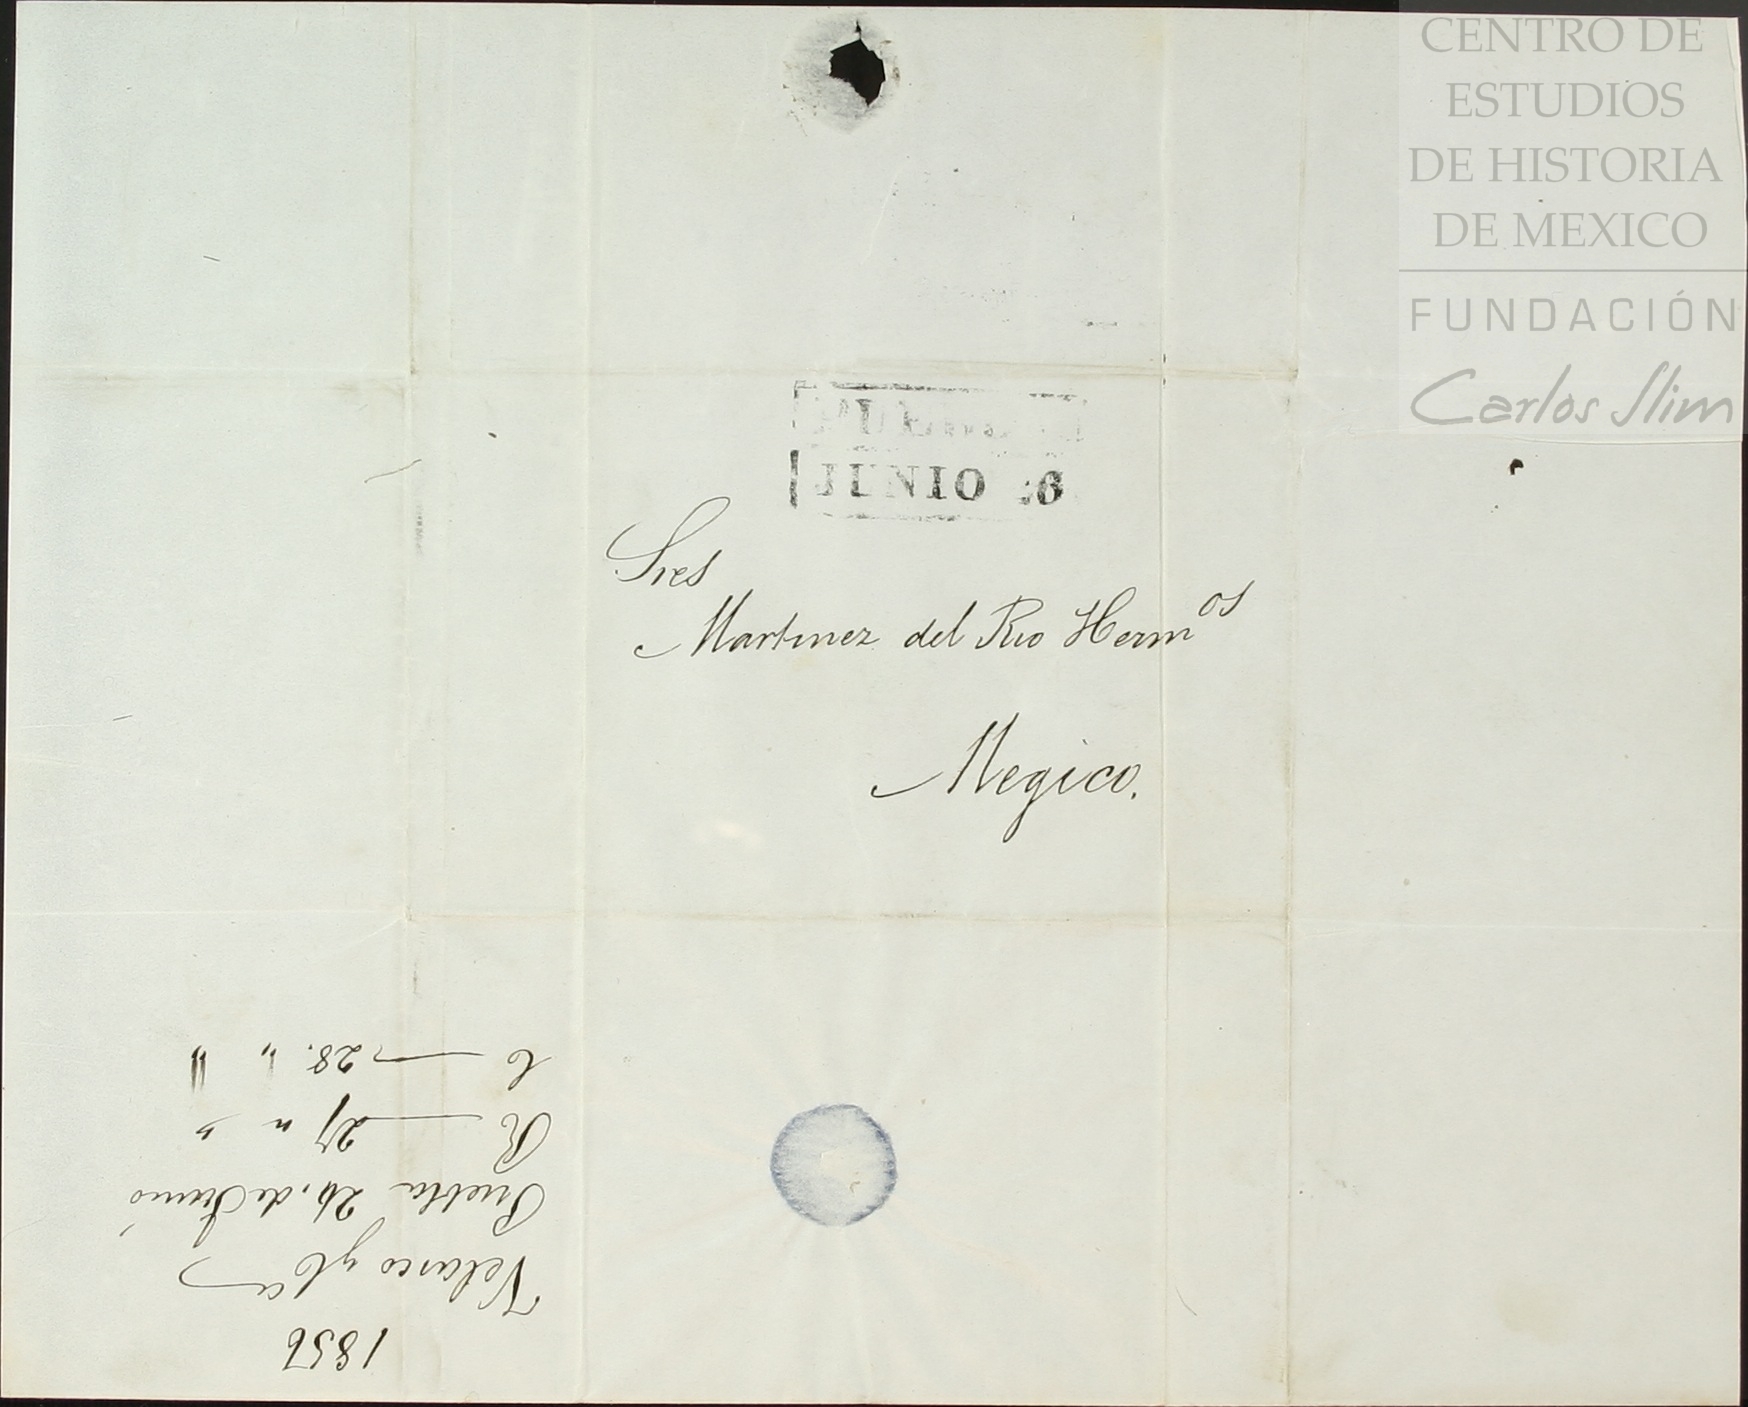 CENTRO DE
ESTUDIOS
DE HISTORIA
DE MEXICO
FUNDACIÓN
Carlos Slim
JUNIO 26
Sres
Martinez del Rio Herm^os
Megico.
1856
Velasco y C^a
Puebla 26, de Junio
R — 27 " "
C — 28. " "